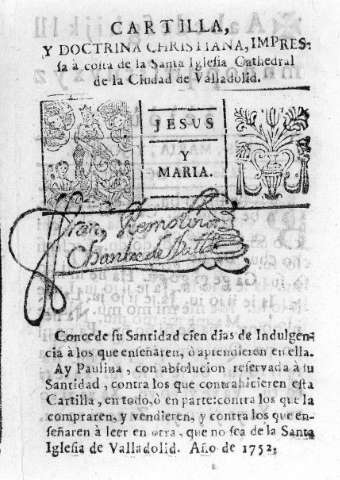 CARTILLA,
Y DOCTRINA CHRISTIANA, IMPRES-
sa à costa de la Santa Iglesia Cathedral
de la Ciudad de Valladolid.
JESUS
Y
MARIA.
Concede su Santidad cien dias de Indulgen-
cia à los que enseñaren, ò aprendieren en ella.
Ay Paulina, con absolucion reservada à su
Santidad, contra los que contrahicieren esta
Cartilla, en todo, ò en parte: contra los que la
compraren, y vendieren, y contra los que en-
señaren à leer en otra, que no sea de la Santa
Iglesia de Valladolid. Año de 1752,